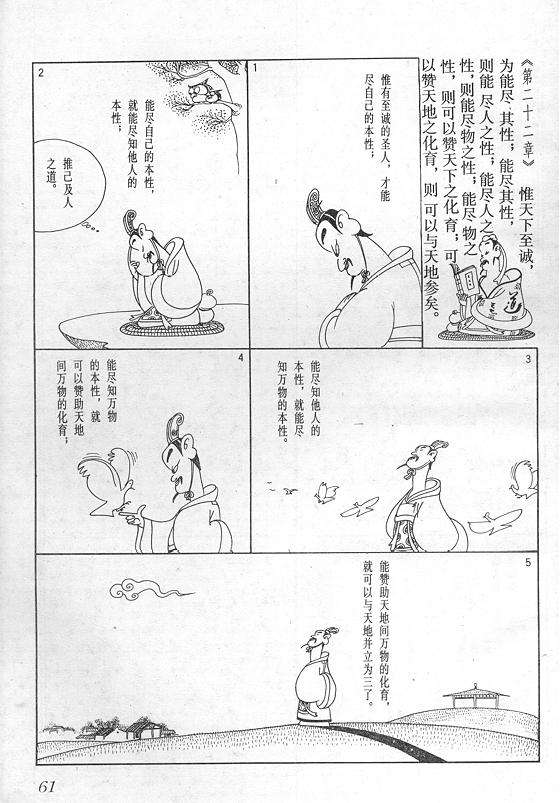 《第二十二章》 惟天下至诚，
为能尽其性；能尽其性，
则能尽人之性；能尽人之
性，则能尽物之性；能尽物之
性，则可以赞天下之化育；可
以赞天地之化育，则可以与天地参矣。
道
1
惟有至诚的圣人，才能
尽自己的本性，
2
能尽自己的本性，
就能尽知他人的
本性；
推己及人
之道。
3
能尽知他人的
本性，就能尽
知万物的本性。
4
能尽知万物
的本性，就
可以赞助天地
间万物的化育；
5
能赞助天地间万物的化育，
就可以与天地并立为三了。
61